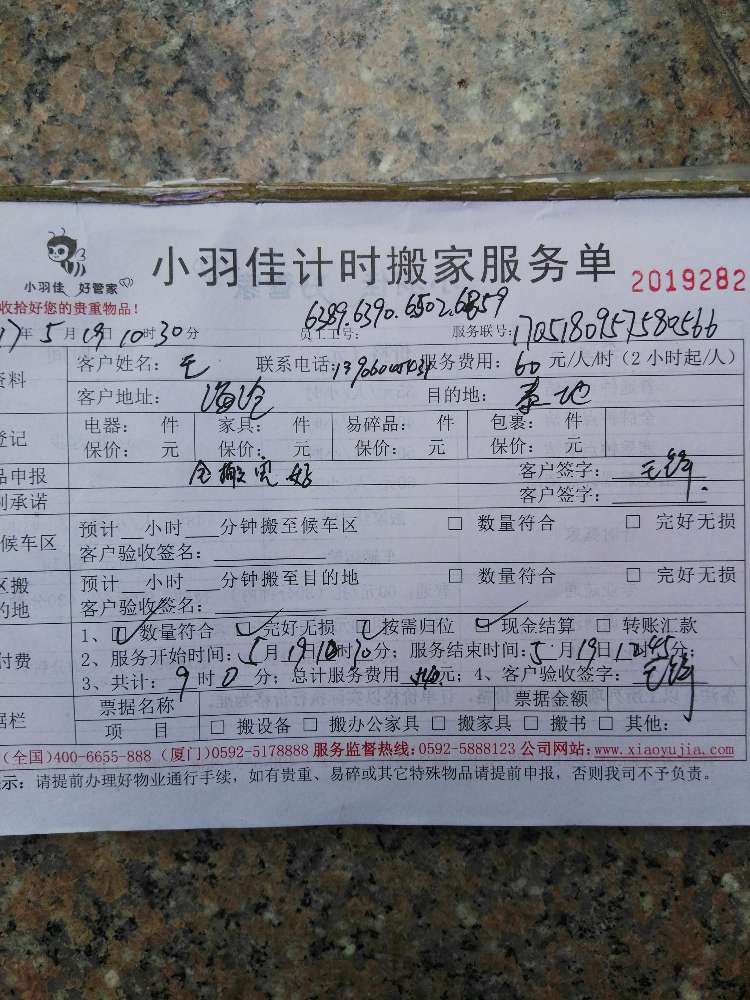 小羽佳 好管家
小羽佳计时搬家服务单 2019282
收拾好您的贵重物品!
6389.6390.6502.6859
17年5月19日10时30分 员工工号: 服务联号:1705180957580566
资料 客户姓名:毛 联系电话: 服务费用:60元/人/时(2小时起/人)
客户地址: 目的地:
登记 电器: 件 家具: 件 易碎品: 件 包裹: 件
保价: 元 保价: 元 保价: 元 保价: 元
品申报 客户签字:毛
承诺 客户签字:
候车区 预计__小时___分钟搬至候车区 □ 数量符合 □ 完好无损
客户验收签名:
区搬 预计__小时___分钟搬至目的地 □ 数量符合 □ 完好无损
的地 客户验收签名:
1、☑数量符合 ☑完好无损 ☑按需归位 ☑现金结算 □ 转账汇款
付费 2、服务开始时间:5月19日10时30分;服务结束时间:5月19日12时45分;
3、共计:9时0分;总计服务费用 元;4、客户验收签字:毛
票据名称 票据金额
据栏 项 目 □ 搬设备 □ 搬办公家具 □ 搬家具 □ 搬书 □ 其他:
(全国)400-6655-888 (厦门)0592-5178888 服务监督热线:0592-5888123 公司网站:www.xiaoyujia.com
示:请提前办理好物业通行手续,如有贵重、易碎或其它特殊物品请提前申报,否则我司不予负责。